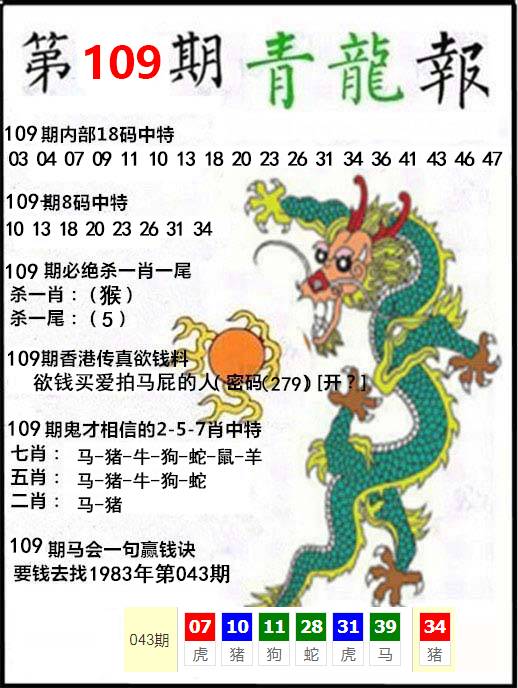 第109期青龍報
109期内部18码中特
03 04 07 09 11 10 13 18 20 23 26 31 34 36 41 43 46 47
109期8码中特
10 13 18 20 23 26 31 34
109 期必绝杀一肖一尾
杀一肖：（猴）
杀一尾：（5）
109期香港传真欲钱料
欲钱买爱拍马屁的人（密码(279）[开？]
109期鬼才相信的2-5-7肖中特
七肖： 马-猪-牛-狗-蛇-鼠-羊
五肖： 马-猪-牛-狗-蛇
二肖： 马-猪
109期马会一句赢钱诀
要钱去找1983年第043期
043期 07 10 11 28 31 39 34
虎 猪 狗 蛇 虎 马 猪